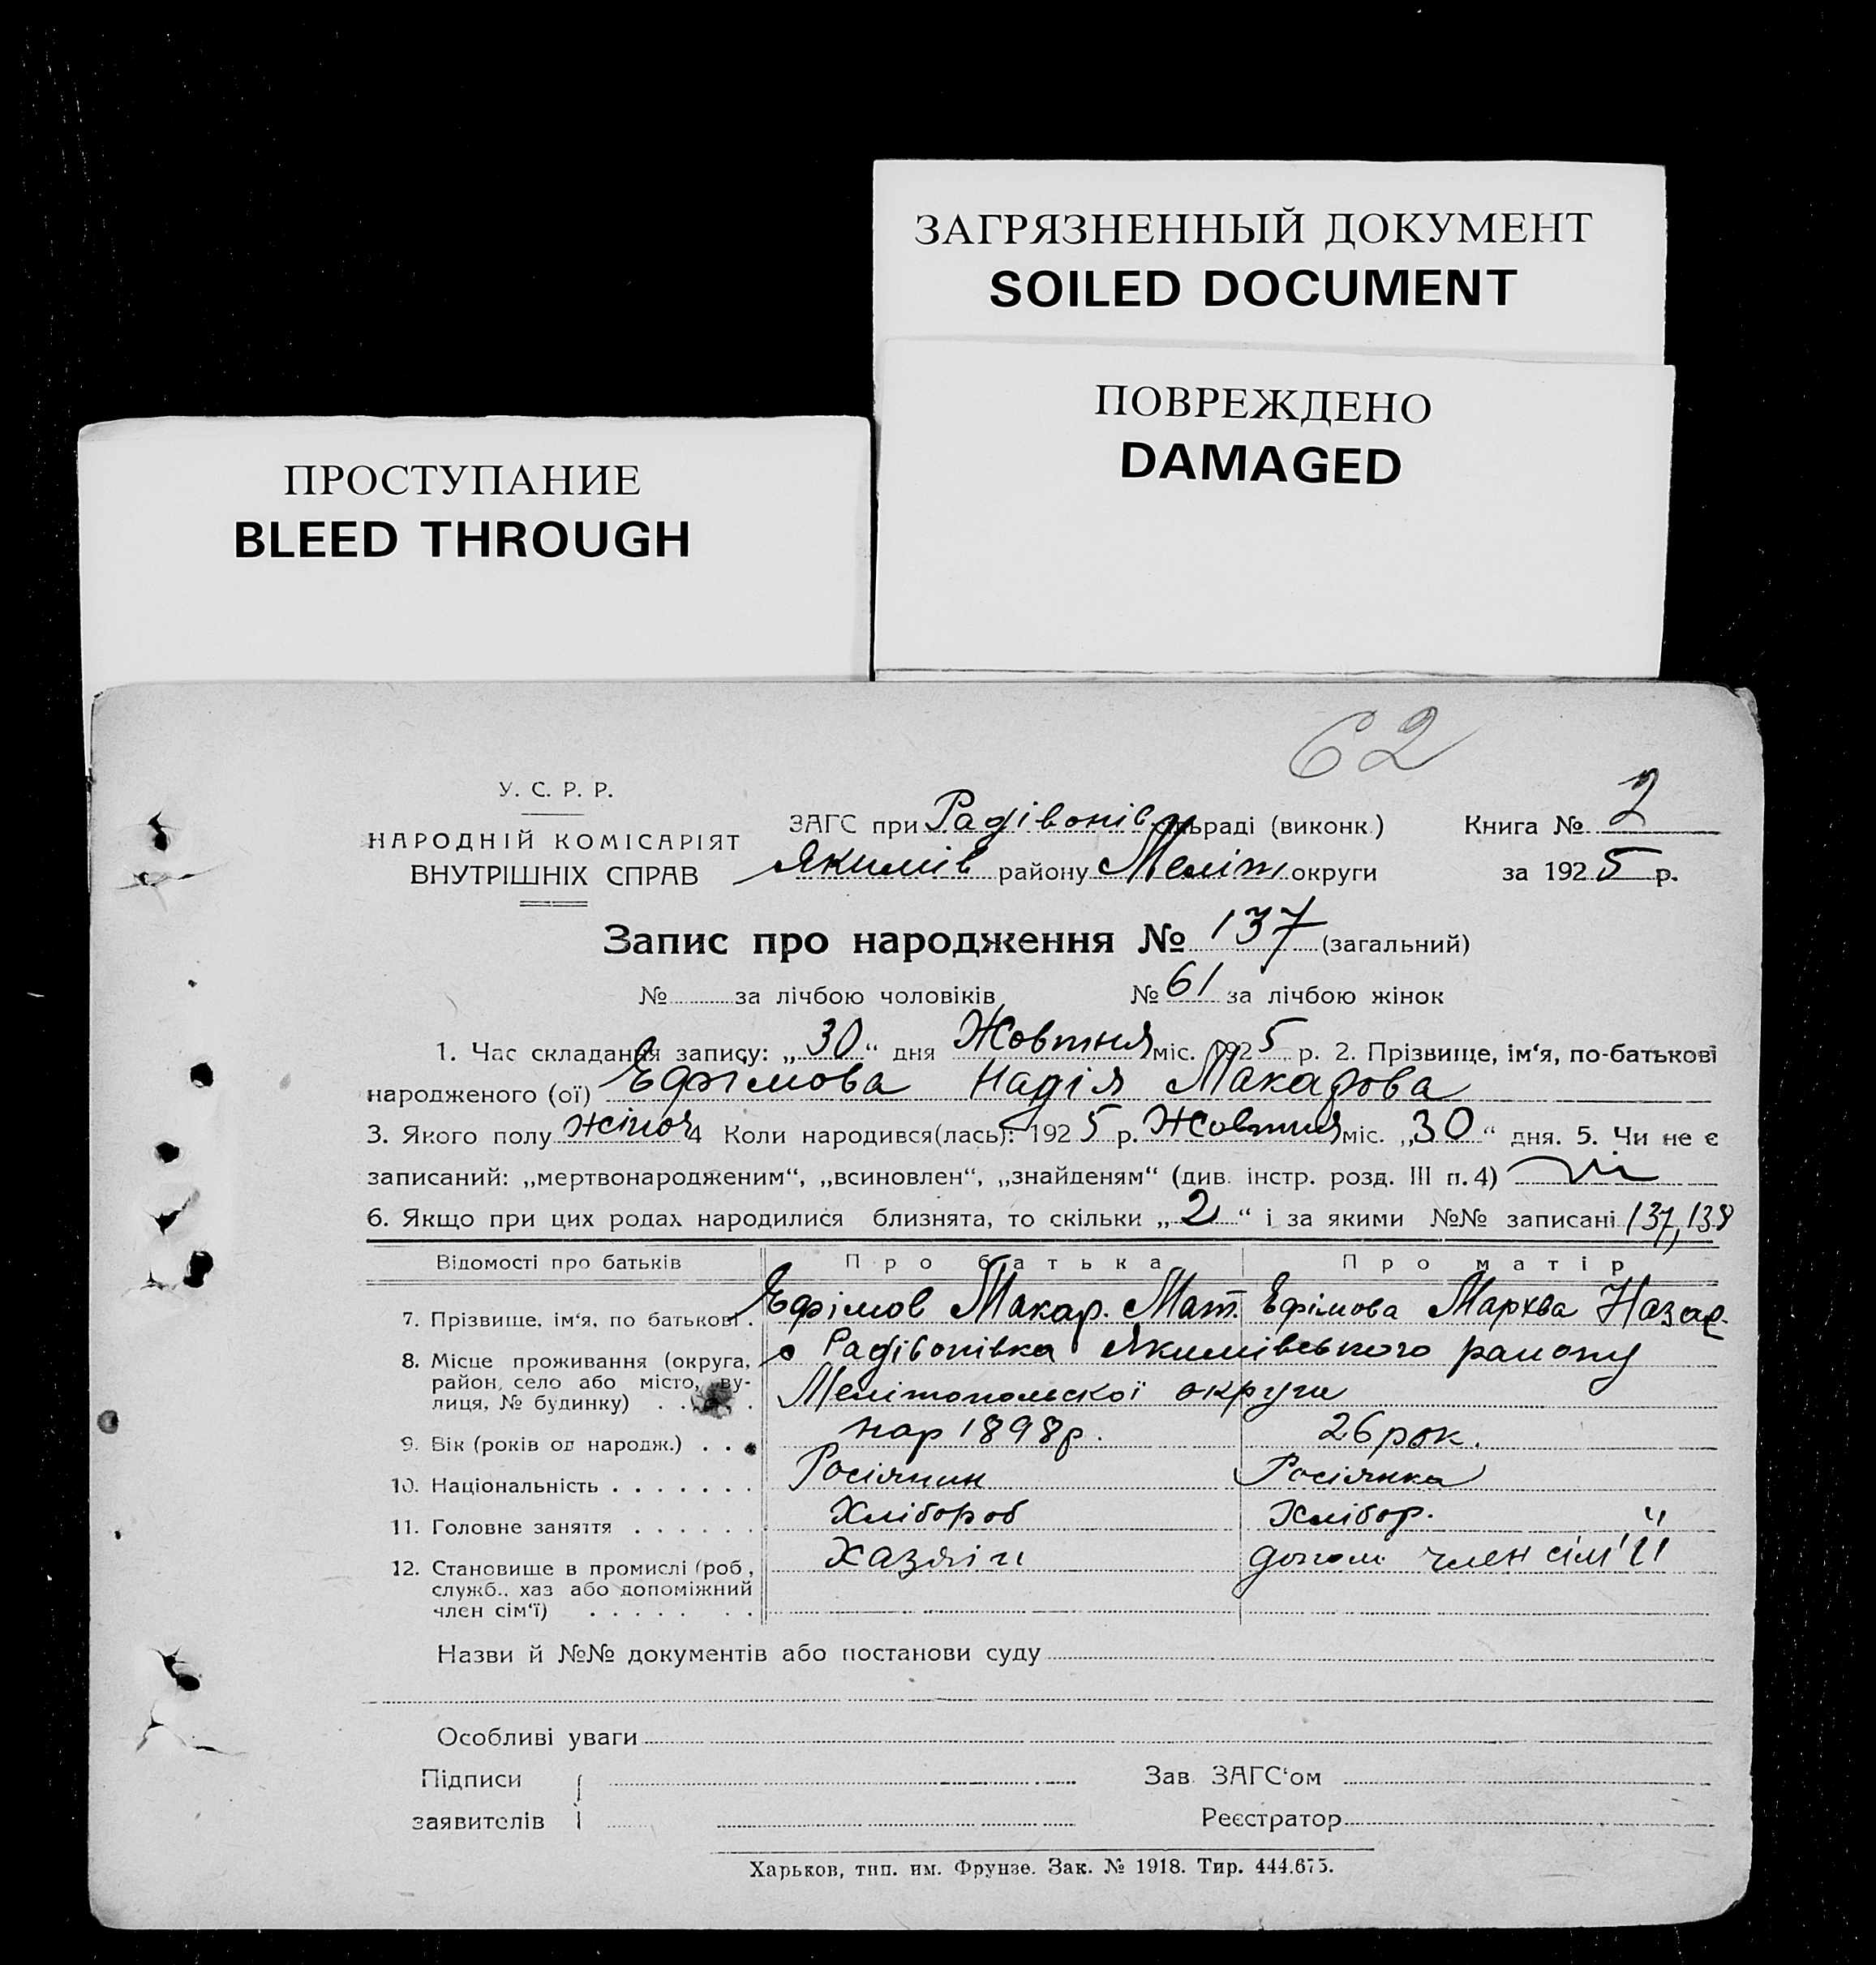 ЗАГРЯЗНЕННЫЙ ДОКУМЕНТ
SOILED DOCUMENT
ПОВРЕЖДЕНО
DAMAGED
ПРОСТУПАНИЕ
BLEED THROUGH
62
У. С. Р. Р.
НАРОДНІЙ КОМІСАРІЯТ
ВНУТРІШНІХ СПРАВ
ЗАГС при Радівонів. сільраді (виконк.) Книга № 2
Якимів району Меліт округи за 1925 р.
Запис про народження № 137 (загальний)
№ за лічбою чоловіків № 61 за лічбою жінок
1. Час складання запису: „30“ дня Жовтня міс. 1925 р. 2. Прізвище, ім‘я, по-батькові
народженого (ої) Ефімова Надія Макарова
3. Якого полу жіноч 4 Коли народився(лась): 1925 р. Жовтня міс. „30“ дня. 5. Чи не є
записаний: „мертвонародженим“, „всиновлен“, „знайденям“ (див. інстр. розд. III п. 4) ні
6. Якщо при цих родах народилися близнята, то скільки „2“ і за якими №№ записані 137, 138
Відомості про батьків Про батька Про матір
7. Прізвище, ім‘я, по батькові . Ефімов Макар. Мат. Ефімова Марква Назар.
8. Місце проживання (округа, с Радівонівка Якимівського району
район, село або місто, ву-
лиця, № будинку) . . . . Мелітопольскої округи
9. Вік (років од народж.) . . . нар 1898р. 26 рок.
10. Національність . . . . . . . Росіянин Росіянка
11. Головне заняття . . . . . . Хлібороб Хлібор. "
12. Становище в промислі (роб., Хазяін допом. член сім'ії
служб., хаз або допоміжний
член сім‘ї) . . . . . . .
Назви й №№ документів або постанови суду
Особливі уваги
Підписи Зав. ЗАГС‘ом
заявителів Реєстратор
Харьков, тип. им. Фрунзе. Зак. № 1918. Тир. 444.675.